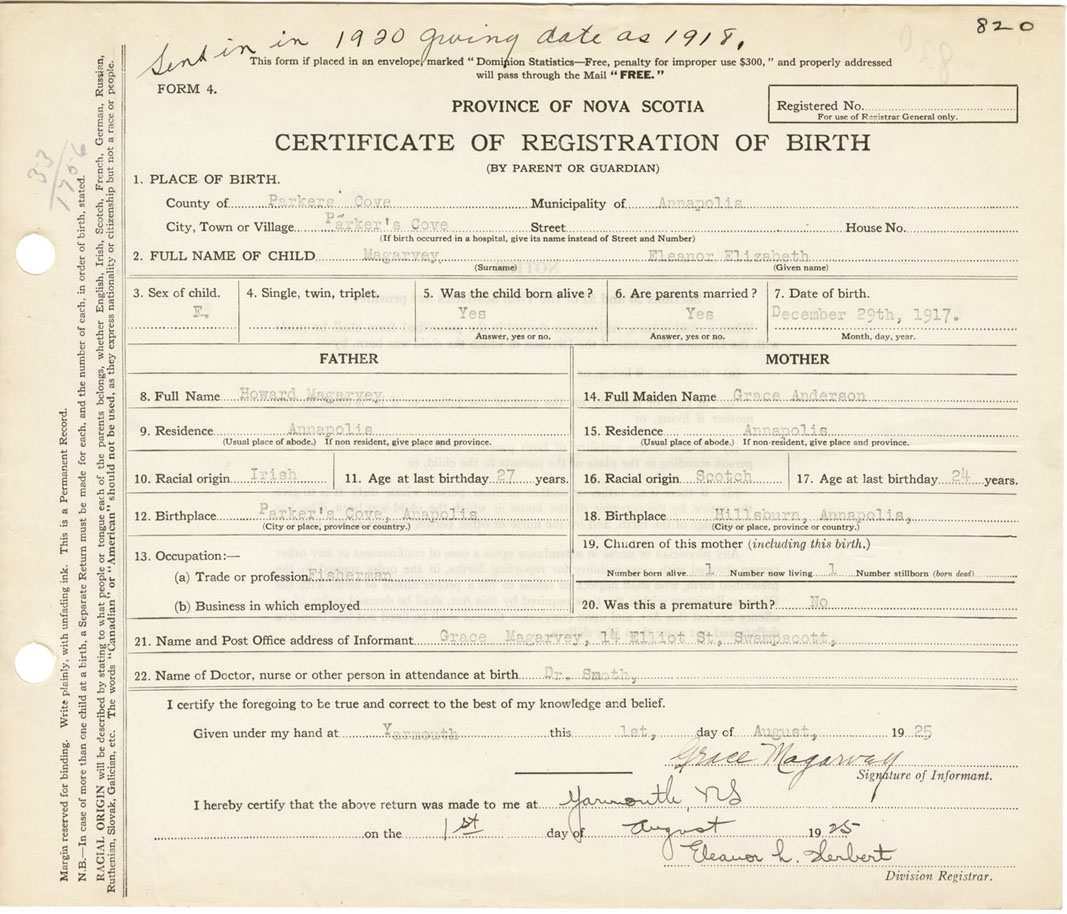 820
Send in in 1920 giving date as 1918.
This form if placed in an envelope, marked "Dominion Statistics—Free, penalty for improper use $300," and properly addressed
will pass through the Mail "FREE."
FORM 4.
PROVINCE OF NOVA SCOTIA
Registered No.
For use of Registrar General only.
CERTIFICATE OF REGISTRATION OF BIRTH
(BY PARENT OR GUARDIAN)
1. PLACE OF BIRTH.
County of Parkers Cove Municipality of Annapolis
City, Town or Village Parker's Cove Street House No.
(If birth occurred in a hospital, give its name instead of Street and Number)
2. FULL NAME OF CHILD Magarvey, Eleanor Elizabeth
(Surname) (Given name)
3. Sex of child. 4. Single, twin, triplet. 5. Was the child born alive? 6. Are parents married? 7. Date of birth.
F. Yes Yes December 29th, 1917.
Answer, yes or no. Answer, yes or no. Month, day, year.
FATHER
8. Full Name Howard Magarvey
9. Residence Annapolis
(Usual place of abode.) If non resident, give place and province.
10. Racial origin Irish 11. Age at last birthday 27 years.
12. Birthplace Parker's Cove, Anapolis
(City or place, province or country.)
13. Occupation:—
(a) Trade or profession Fisherman
(b) Business in which employed
MOTHER
14. Full Maiden Name Grace Anderson
15. Residence Annapolis
(Usual place of abode.) If non-resident, give place and province.
16. Racial origin Scotch 17. Age at last birthday 24 years.
18. Birthplace Hillsburn, Annapolis,
(City or place, province or country.)
19. Children of this mother (including this birth.)
Number born alive 1 Number now living 1 Number stillborn (born dead)
20. Was this a premature birth? No
21. Name and Post Office address of Informant Grace Magarvey, 14 Elliot St, Swampscott,
22. Name of Doctor, nurse or other person in attendance at birth Dr. Smath,
I certify the foregoing to be true and correct to the best of my knowledge and belief.
Given under my hand at Yarmouth this 1st, day of August, 1925
Grace Magarvey
Signature of Informant.
I hereby certify that the above return was made to me at Yarmouth, NS
on the 1st day of August 1925
Eleanor L. Herbert
Division Registrar.
Margin reserved for binding. Write plainly, with unfading ink. This is a Permanent Record.
N.B.—In case of more than one child at a birth, a Separate Return must be made for each, and the number of each, in order of birth, stated.
RACIAL ORIGIN will be described by stating to what people or tongue each of the parents belongs, whether English, Irish, Scotch, French, German, Russian,
Ruthenian, Slovak, Galician, etc. The words "Canadian" or "American" should not be used, as they express nationality or citizenship but not a race or people.
33
1756